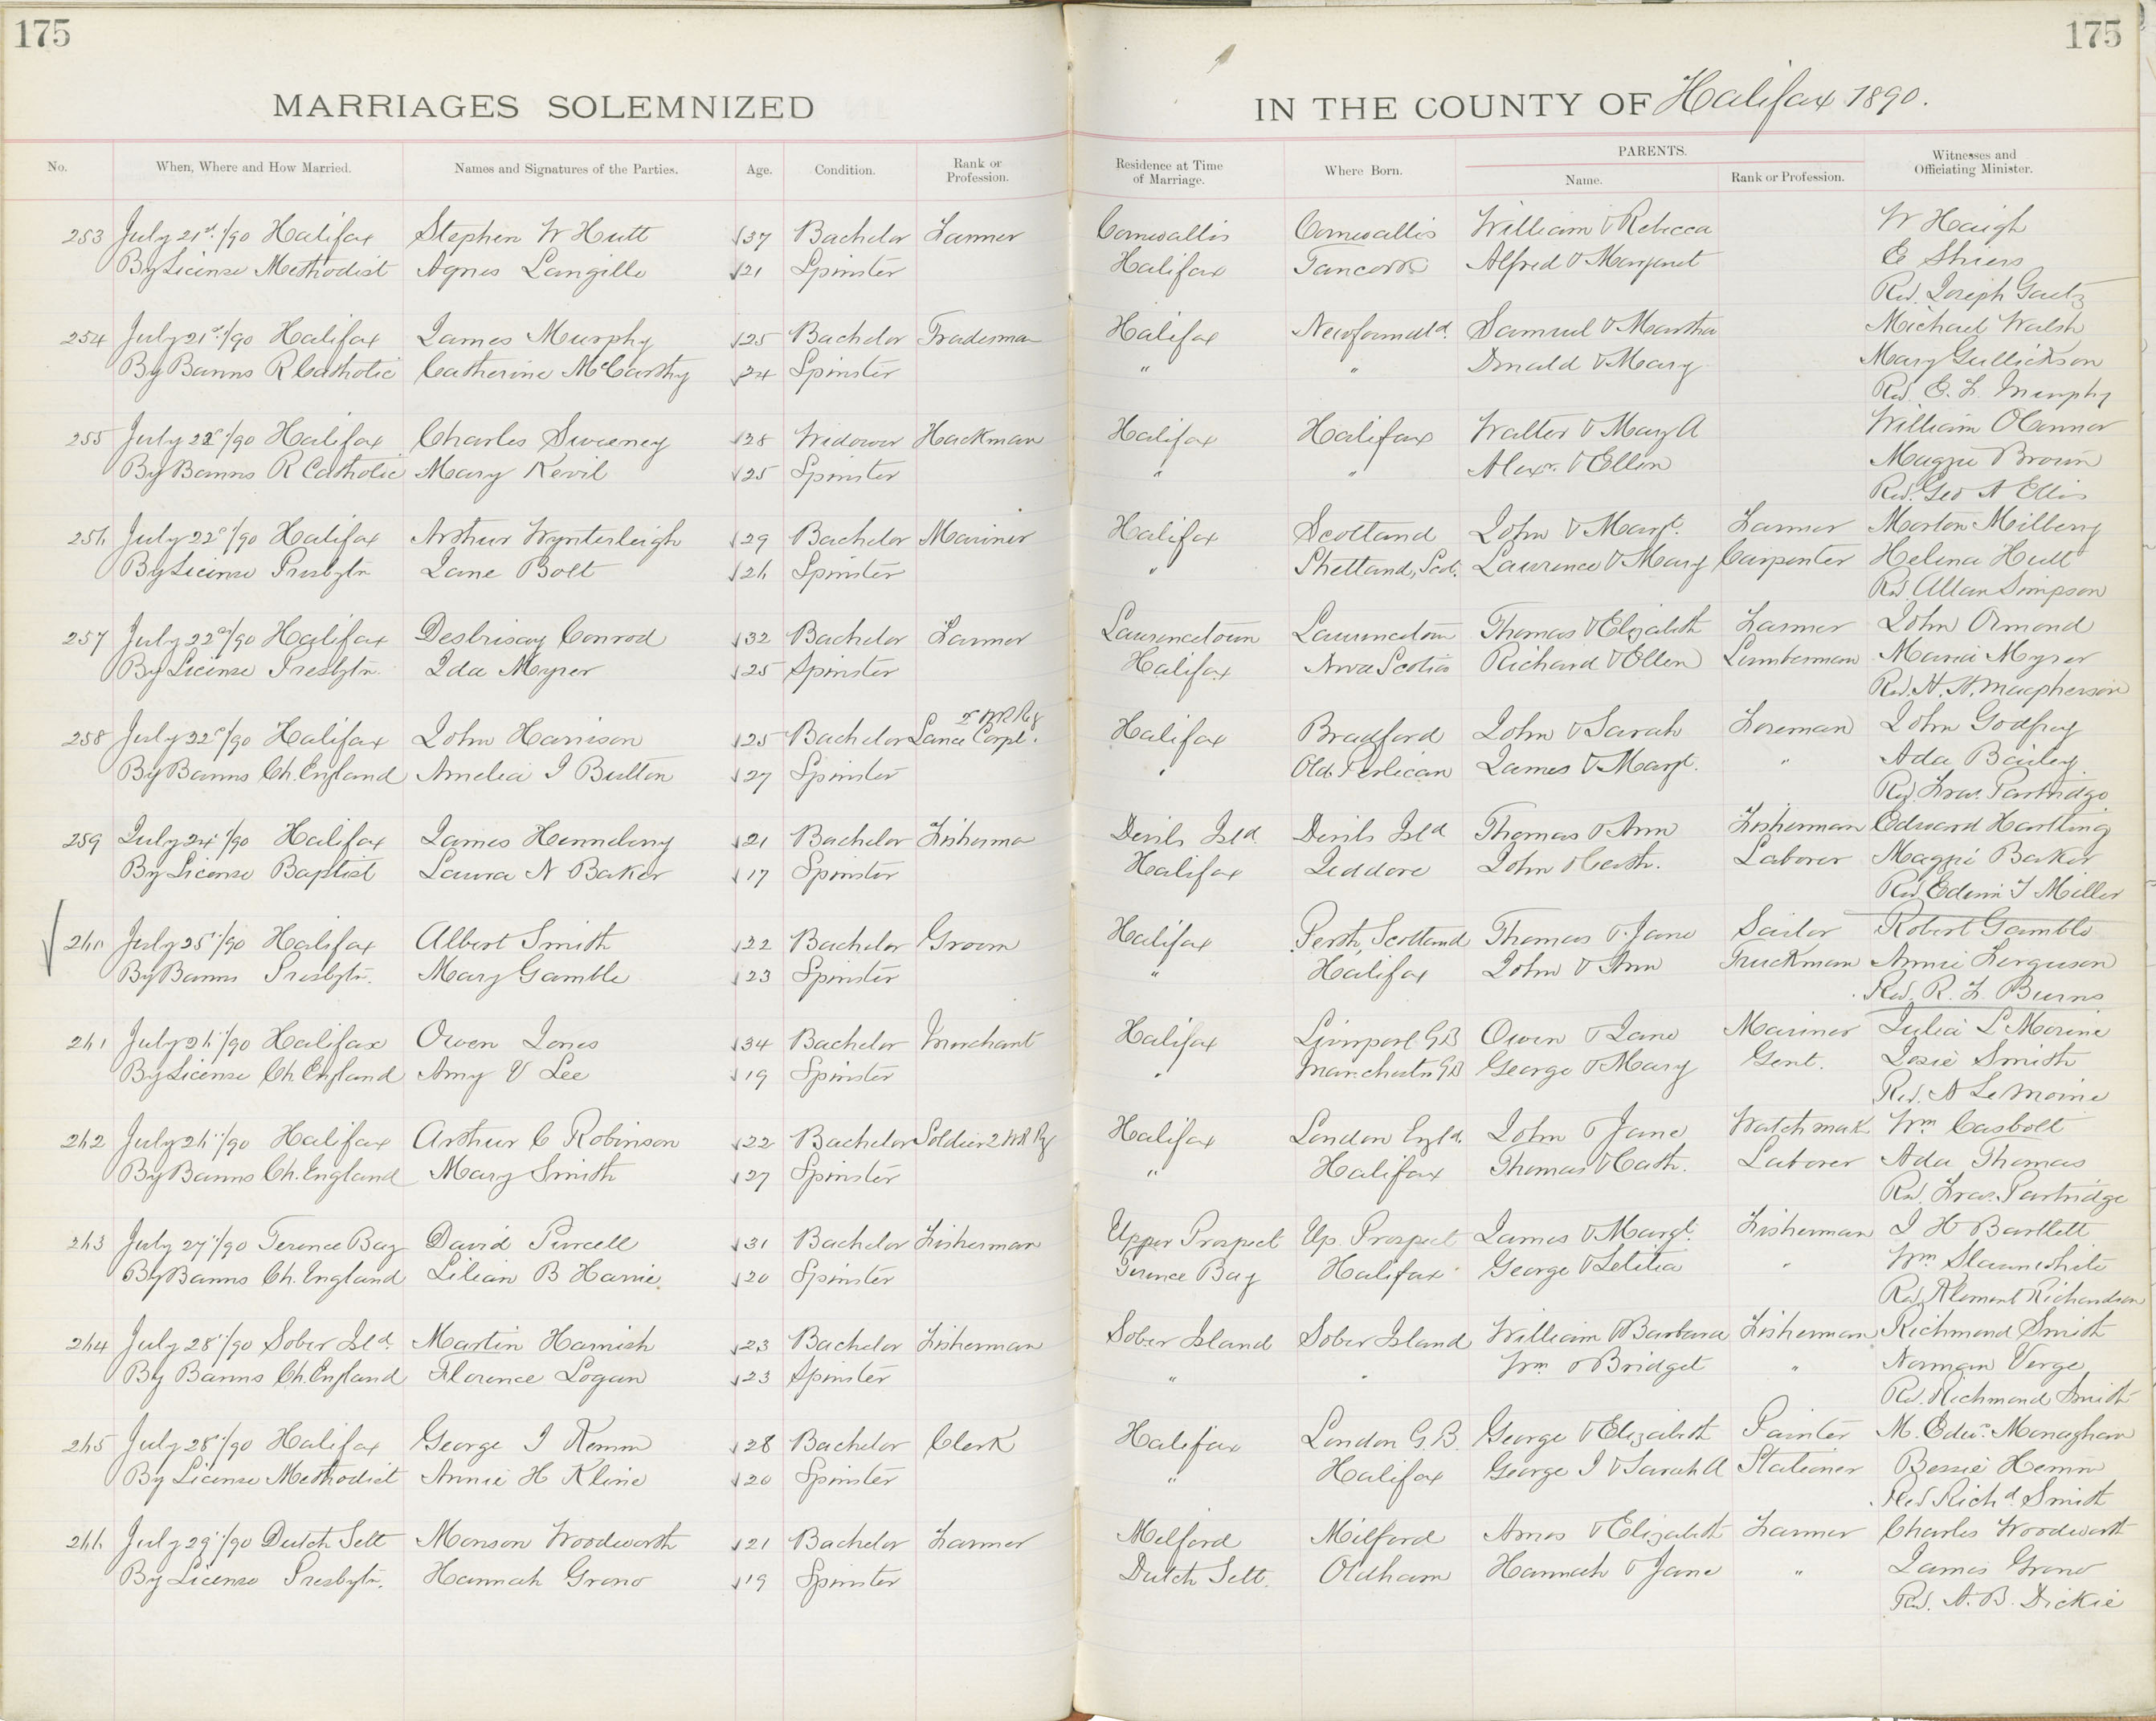 175
175
MARRIAGES SOLEMNIZED IN THE COUNTY OF Halifax 1890.
No. When, Where and How Married. Names and Signatures of the Parties. Age. Condition. Rank or Profession. Residence at Time of Marriage. Where Born. PARENTS. Name. Rank or Profession. Witnesses and Officiating Minister.
253 July 21st/90 Halifax Stephen W Hutt 37 Bachelor Farmer Cornwallis Cornwallis William & Rebecca W Haigh
By License Methodist Agnes Langille 21 Spinster Halifax Tancook Alfred & Margaret E Shiers
Rev. Joseph Gaetz
254 July 21st/90 Halifax James Murphy 25 Bachelor Tradesman Halifax Newfoundld. Samuel & Martha Michael Walsh
By Banns R Catholic Catherine McCarthy 24 Spinster " " Donald & Mary Mary Gullickson
Rev. E. F. Murphy
255 July 22d/90 Halifax Charles Sweeney 28 Widower Hackman Halifax Halifax Walter & Mary A William OConnor
By Banns R Catholic Mary Kevil 25 Spinster " " Alexr. & Ellen Maggie Brown
Rev. Geo A Ellis
256 July 22d/90 Halifax Arthur Wynterleigh 29 Bachelor Mariner Halifax Scotland John & Margt. Farmer Morton Milberry
By License Presbytn Jane Bolt 26 Spinster " Shetland, Scot. Laurence & Mary Carpenter Helena Hutt
Rev Allan Simpson
257 July 22d/90 Halifax Desbrisay Conrod 32 Bachelor Farmer Lawrencetown Lawrencetown Thomas & Elizabeth Farmer John Ormond
By License Presbytn. Ida Myrer 25 Spinster Halifax Nova Scotia Richard & Ellen Lumberman Maria Myrer
Rev. H. H. Macpherson
258 July 22d/90 Halifax John Harrison 25 Bachelor Lance Corpl. Halifax Bradford John & Sarah Foreman John Godfrey
By Banns Ch. England Amelia J Bulton 27 Spinster " Old Perlican James & Margt. " Ada Bailey
Rev. Fras. Partridge
259 July 24/90 Halifax James Henneberry 21 Bachelor Fisherman Devils Isld. Devils Isld Thomas & Ann Fisherman Edward Hartling
By License Baptist Laura N Baker 17 Spinster Halifax Jeddore John & Cath. Laborer Maggie Baker
Rev Edwin J Miller
260 July 25/90 Halifax Albert Smith 22 Bachelor Groom Halifax Perth, Scotland Thomas & Jane Sailor Robert Gamble
By Banns Presbytn. Mary Gamble 23 Spinster " Halifax John & Ann Truckman Annie Ferguson
Rev. R. F. Burns
261 July 26/90 Halifax Owen Jones 34 Bachelor Merchant Halifax Liverpool GB Owen & Jane Mariner Julia L Morine
By License Ch England Amy V Lee 19 Spinster " Manchestr GB George & Mary Gent. Josie Smith
Rev. A LeMoine
262 July 26/90 Halifax Arthur C Robinson 22 Bachelor Soldier 2 WR Rg Halifax London Engld. John & Jane Watchmak Wm Casbolt
By Banns Ch. England Mary Smith 27 Spinster " Halifax Thomas & Cath. Laborer Ada Thomas
Rev. Fras. Partridge
263 July 27/90 Terence Bay David Purcell 31 Bachelor Fisherman Upper Prospect Up. Prospect James & Margt. Fisherman J H Bartlett
By Banns Ch. England Lilian B Harrie 20 Spinster Terence Bay Halifax George & Letitia " Wm Slaunwhite
Rev. Klement Richardson
264 July 28/90 Sober Isld. Martin Harnish 23 Bachelor Fisherman Sober Island Sober Island William & Barbara Fisherman Richmond Smith
By Banns Ch. England Florence Logan 23 Spinster " " Wm & Bridget " Norman Verge
Rev. Richmond Smith
265 July 28/90 Halifax George J Hemm 28 Bachelor Clerk Halifax London G.B. George & Elizabeth Painter M. Edw. Monaghan
By License Methodist Annie H Kline 20 Spinster " Halifax George J & Sarah A Stationer Bessie Hemm
Rev Richd. Smith
266 July 29/90 Dutch Sett Monson Woodworth 21 Bachelor Farmer Milford Milford Amos & Elizabeth Farmer Charles Woodworth
By License Presbytn. Hannah Grono 19 Spinster Dutch Sett. Oldham Hannah & Jane " James Grono
Rev. A. B. Dickie